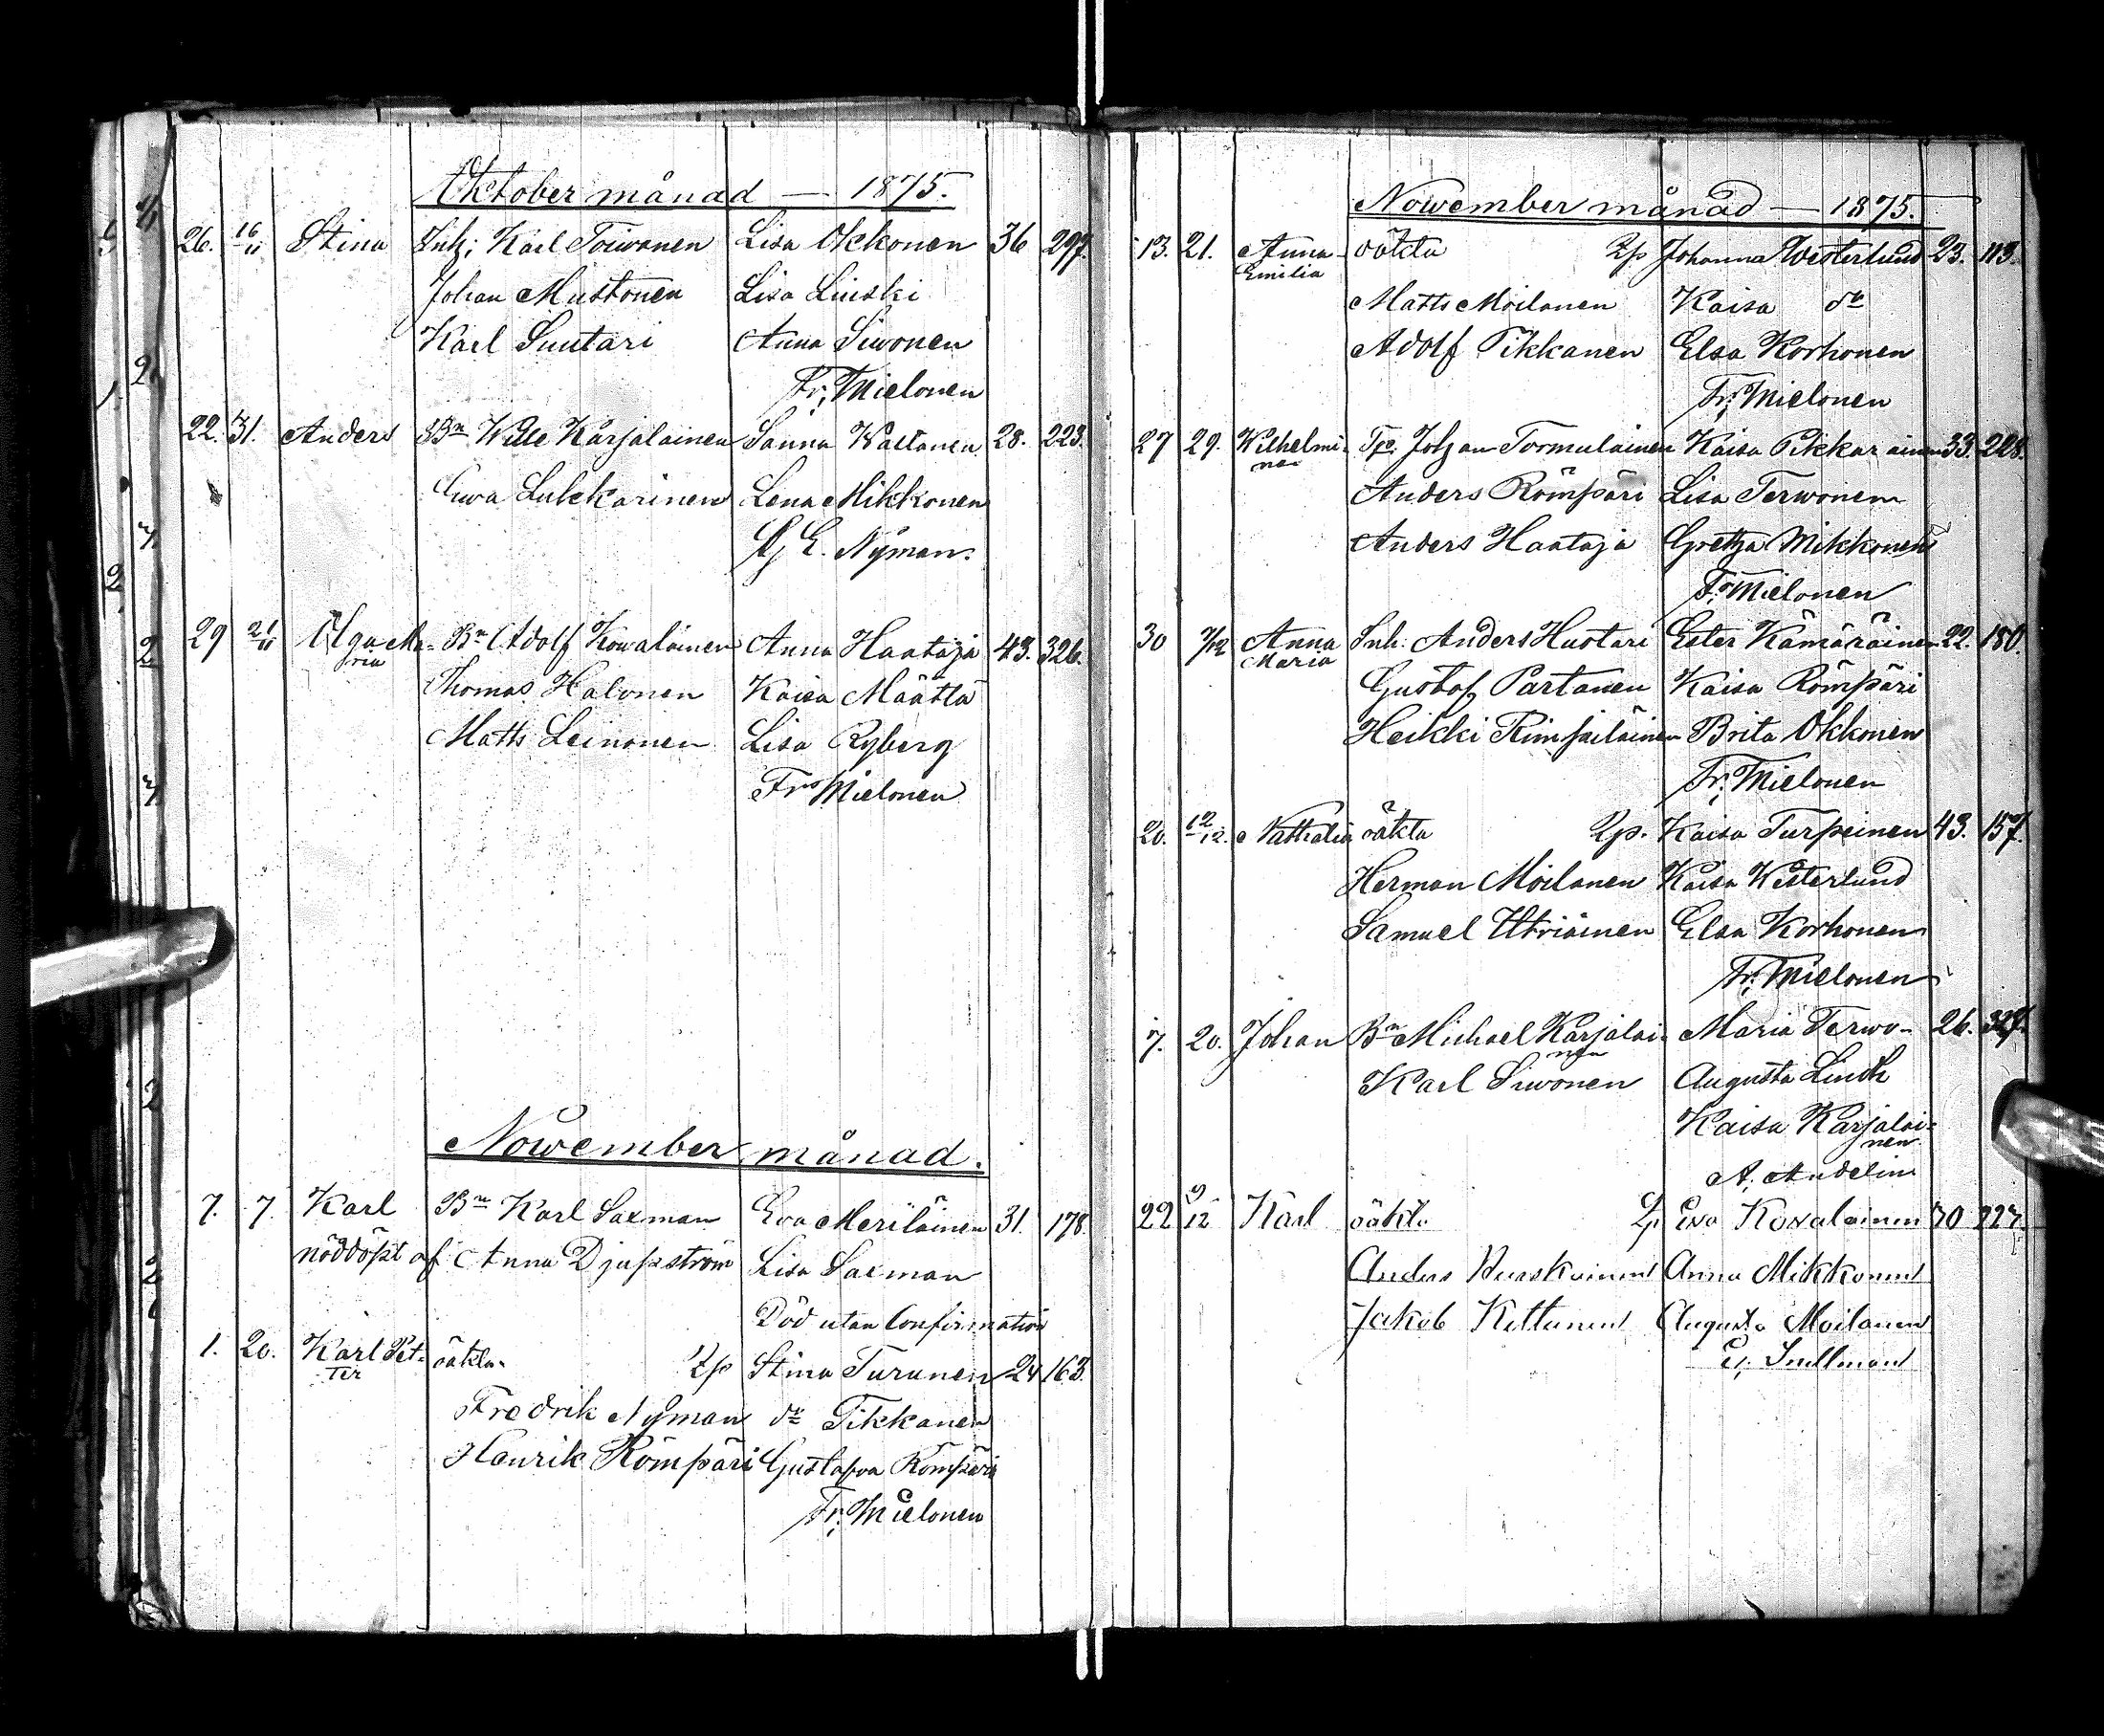 Oktober månad — 1875.
26. 16/11 Stina Inh; Karl Toiwonen Lisa Okkonen 36 297.
Johan Mustonen Lisa Linski
Karl Suutari Anna Siwonen
Fr; Mielonen
22. 31. Anders Bn Wille Karjalainen Sanna Wattanen 28. 223.
Ewa Lukkarinen Lena Mikkonen
G E. Nyman.
29 21/11 Olga Ma- Bn Adolf Kowalainen Anna Haataja 43. 326.
ria
Thomas Halonen Kaisa Määttä
Matts Leinonen Lisa Ryberg
Fr Mielonen
Nowember månad.
7. 7. Karl Bn Karl Saxman Eva Meriläinen 31. 178.
nöddöpt af Anna Djupström Lisa Saxman
Död utan Confirmation
1. 20. Karl Pet- oäkta 2p Stina Turunen 24 163.
ter
Fredrik Nyman do Tikkanen
Henrik Römpäri Gustafva Römpäri
Fr; Mielonen
Nowember månad — 1875.
13. 21. Anna- oäkta 2p Johanna Westerlund 23. 113.
Emilia
Matts Moilanen Kaisa do
Adolf Tikkanen Elsa Korhonen
Fr; Mielonen
27 29. Wilhelmi- Tp. Johan Tormulainen Kaisa Pikkarainen 33. 228.
na
Anders Römpäri Lisa Terwonen
Anders Haataja Gretha Mikkonen
Fr; Mielonen
30 7/12 Anna Inh. Anders Huotari Ester Kämäräinen 22. 180.
Maria
Gustof Partanen Kaisa Römpäri
Heikki Rimpiläinen Brita Okkonen
Fr; Mielonen
20. 12/12. Nathalia oäkta 2p. Kaisa Turpeinen 43. 157.
Herman Moilanen Kaisa Westerlund
Samuel Utriainen Elsa Korhonen
Fr; Mielonen
7. 20. Johan Bn Michael Karjalai- Maria Terwo- 26. 327.
nen
Karl Siwonen Augusta Lindh
Kaisa Karjalai-
nen
A. Andelin
22 9/12 Karl oäkta 2p Ewa Kovalainen 30 227.
Anders Anna Mikkonen
Jakob Kettunen Augusta Moilanen
Snellman